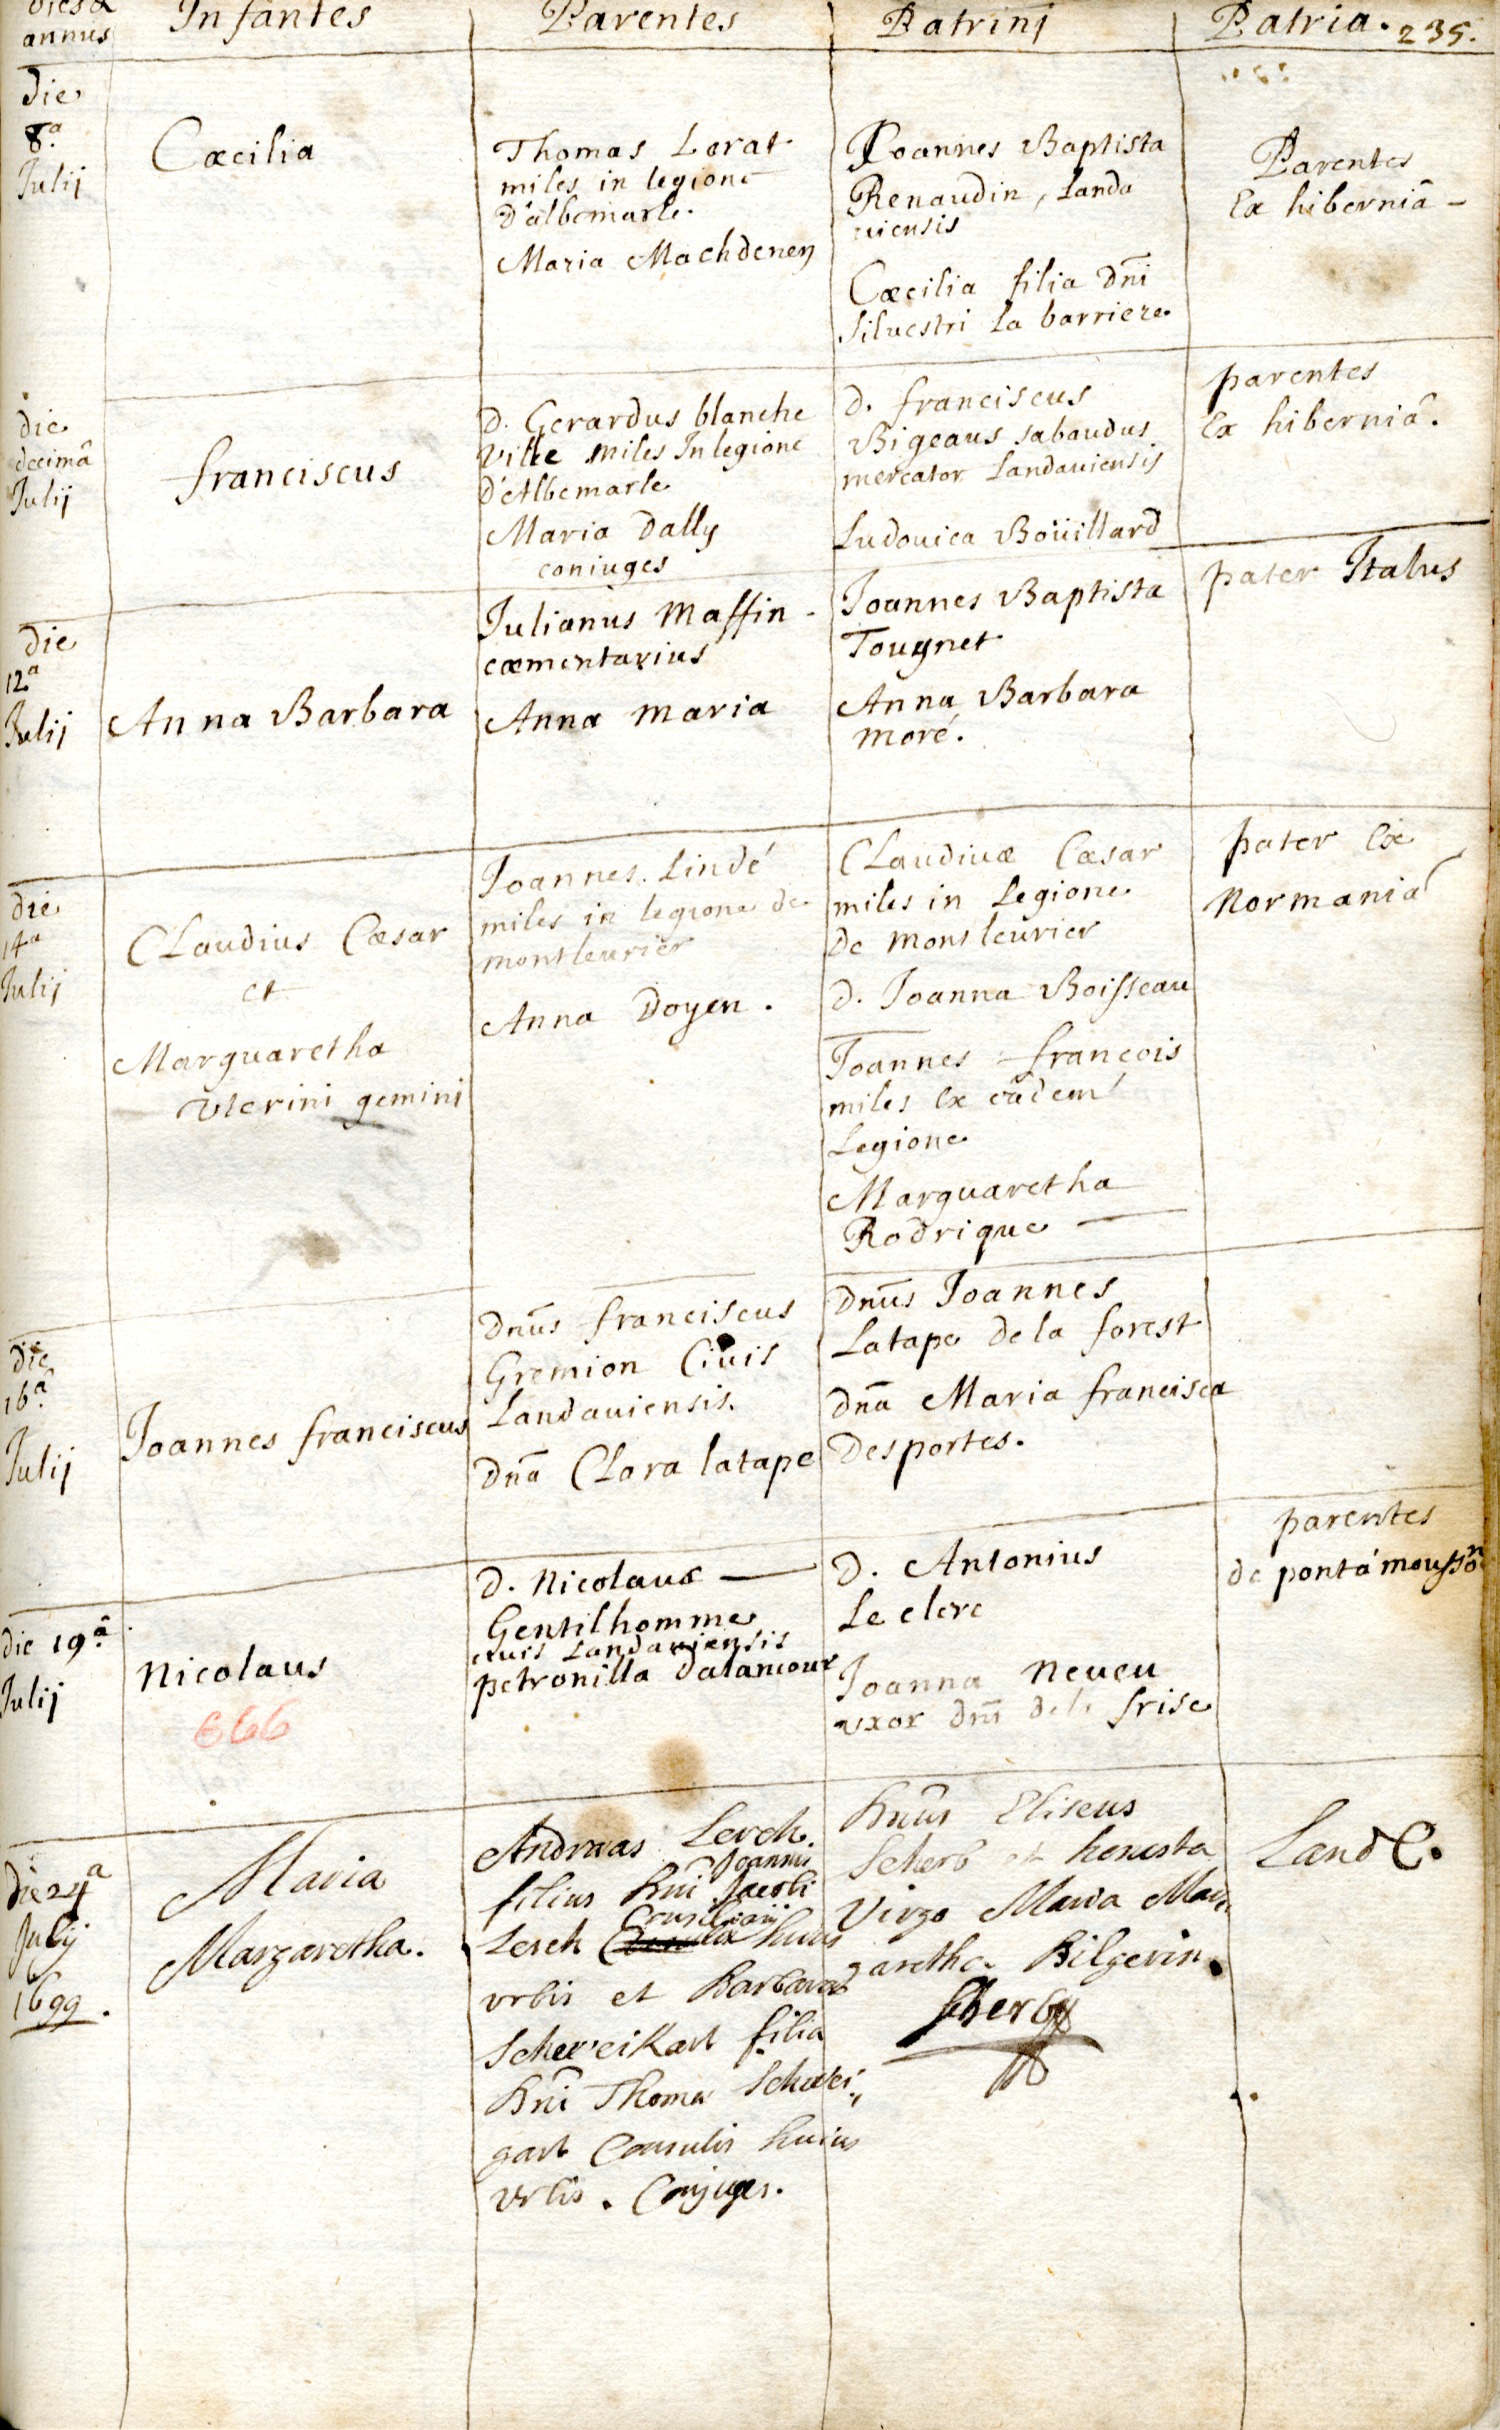 dies &
annus
Infantes
Parentes
Patrinj
Patria. 235.
die
8.ª
Julij
Cæcilia
Thomas Lorat
miles in legione
D'albemarle.
Maria Machdeney
Joannes Baptista
Renaudin, Landa
uiensis
Cæcilia filia Dni
Siluestri La barriere.
Parentes
Ex hiberniâ -
die
decimâ
Julij
franciscus
D. Gerardus blanche
ville miles In legione
D'Albemarle
Maria Dally
coniuges
D. franciscus
Bigeaus sabaudus
mercator Landauiensis
Ludouica Boüillard
parentes
Ex hiberniâ.
die
12ª
Julij
Anna Barbara
Julianus Maffin
cæmentarius
Anna Maria
Joannes Baptista
Tougnet
Anna Barbara
Moré.
pater Italus
die
14ª
Julij
CLaudius Cæsar
et
Marguaretha
vterini gemini
Joannes Lindé
miles in legione de
montleurier
Anna Doyen.
CLaudius Cæsar
miles in Legione
De Monsleurier
D. Joanna Boisseau
Joannes françois
miles Ex eâdem
Legione
Marguaretha
Rodrique
pater Ex
Normaniâ
die
16ª
Julij
Joannes franciscus
Dnus franciscus
Gremion Ciuis
Landauiensis.
Dna CLara latape
Dnus Joannes
Latape de la forest
Dna Maria francisca
Desportes.
die 19.ª
Julij
Nicolaus
666
D. Nicolaus
Gentilhomme
ciuis Landauiensis
petronilla Dalamour
D. Antonius
Le clerc
Joanna Neueu
vxor Dni de la frise
parentes
de pontâ mousson
Die 24ª
July
1699.
Maria
Margaretha.
Andreas Lerch.
Joannis
filius hni Jacobi
Consiliarij
Lerch huius
vrbis et Barbara
Schweikart filia
hni Thomæ Schwei,,
gart Consulis huius
vrbis. Conjuges.
hnus Eliseus
Scherb et honesta
Virgo Maria Mar,,
garetha Bilgerin.
Scherb
Land C.